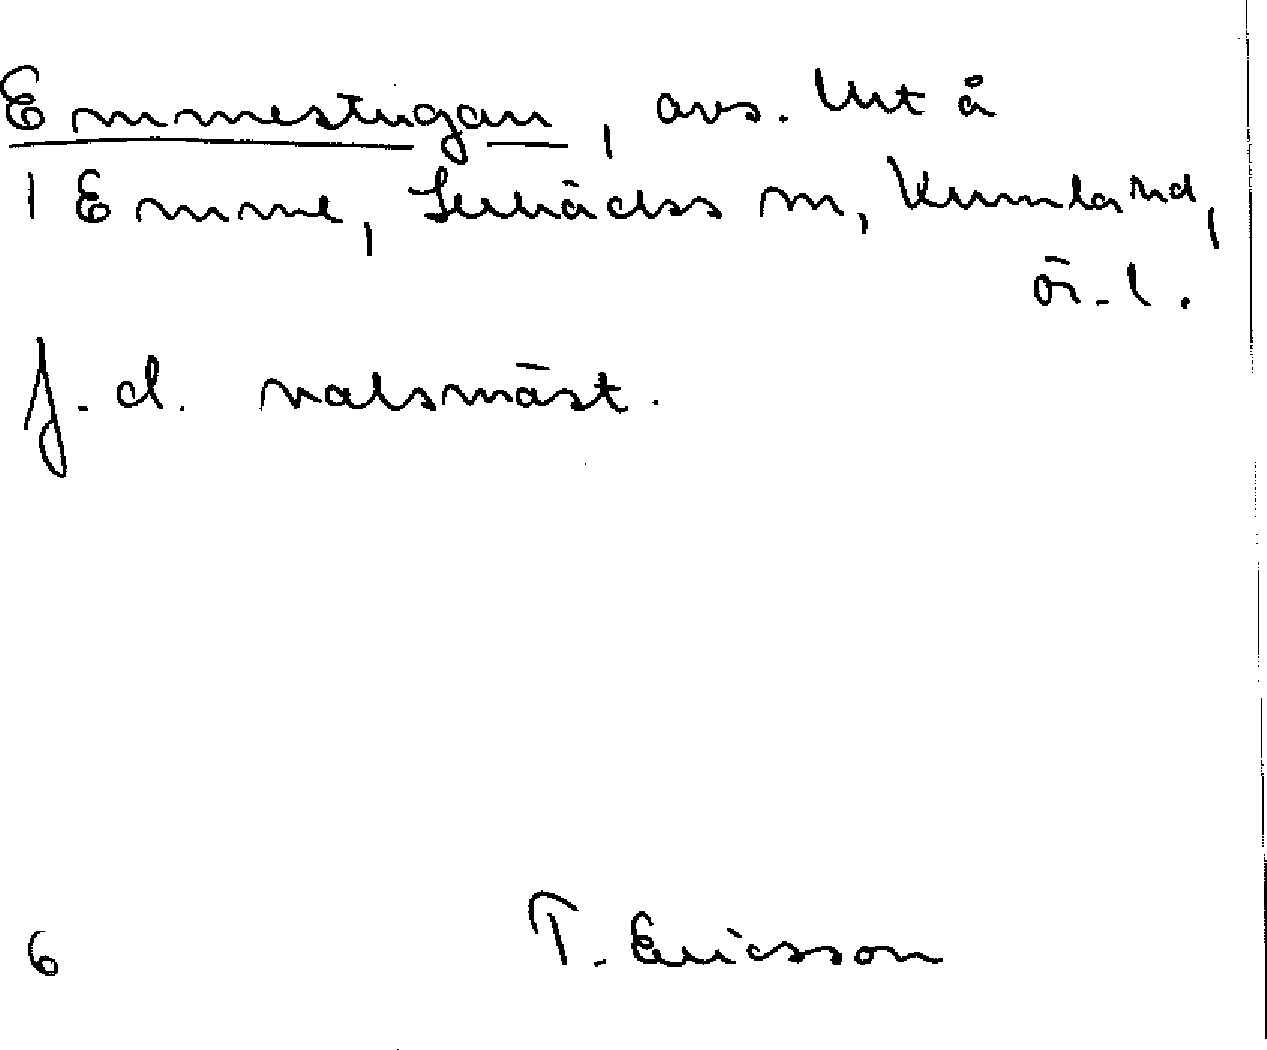 Emmestugan, avs. Utt å
1 Emme, Lerbäcks sn, Kumla hd,
ör. l.
f. d. valsmäst.
6
T. Ericsson